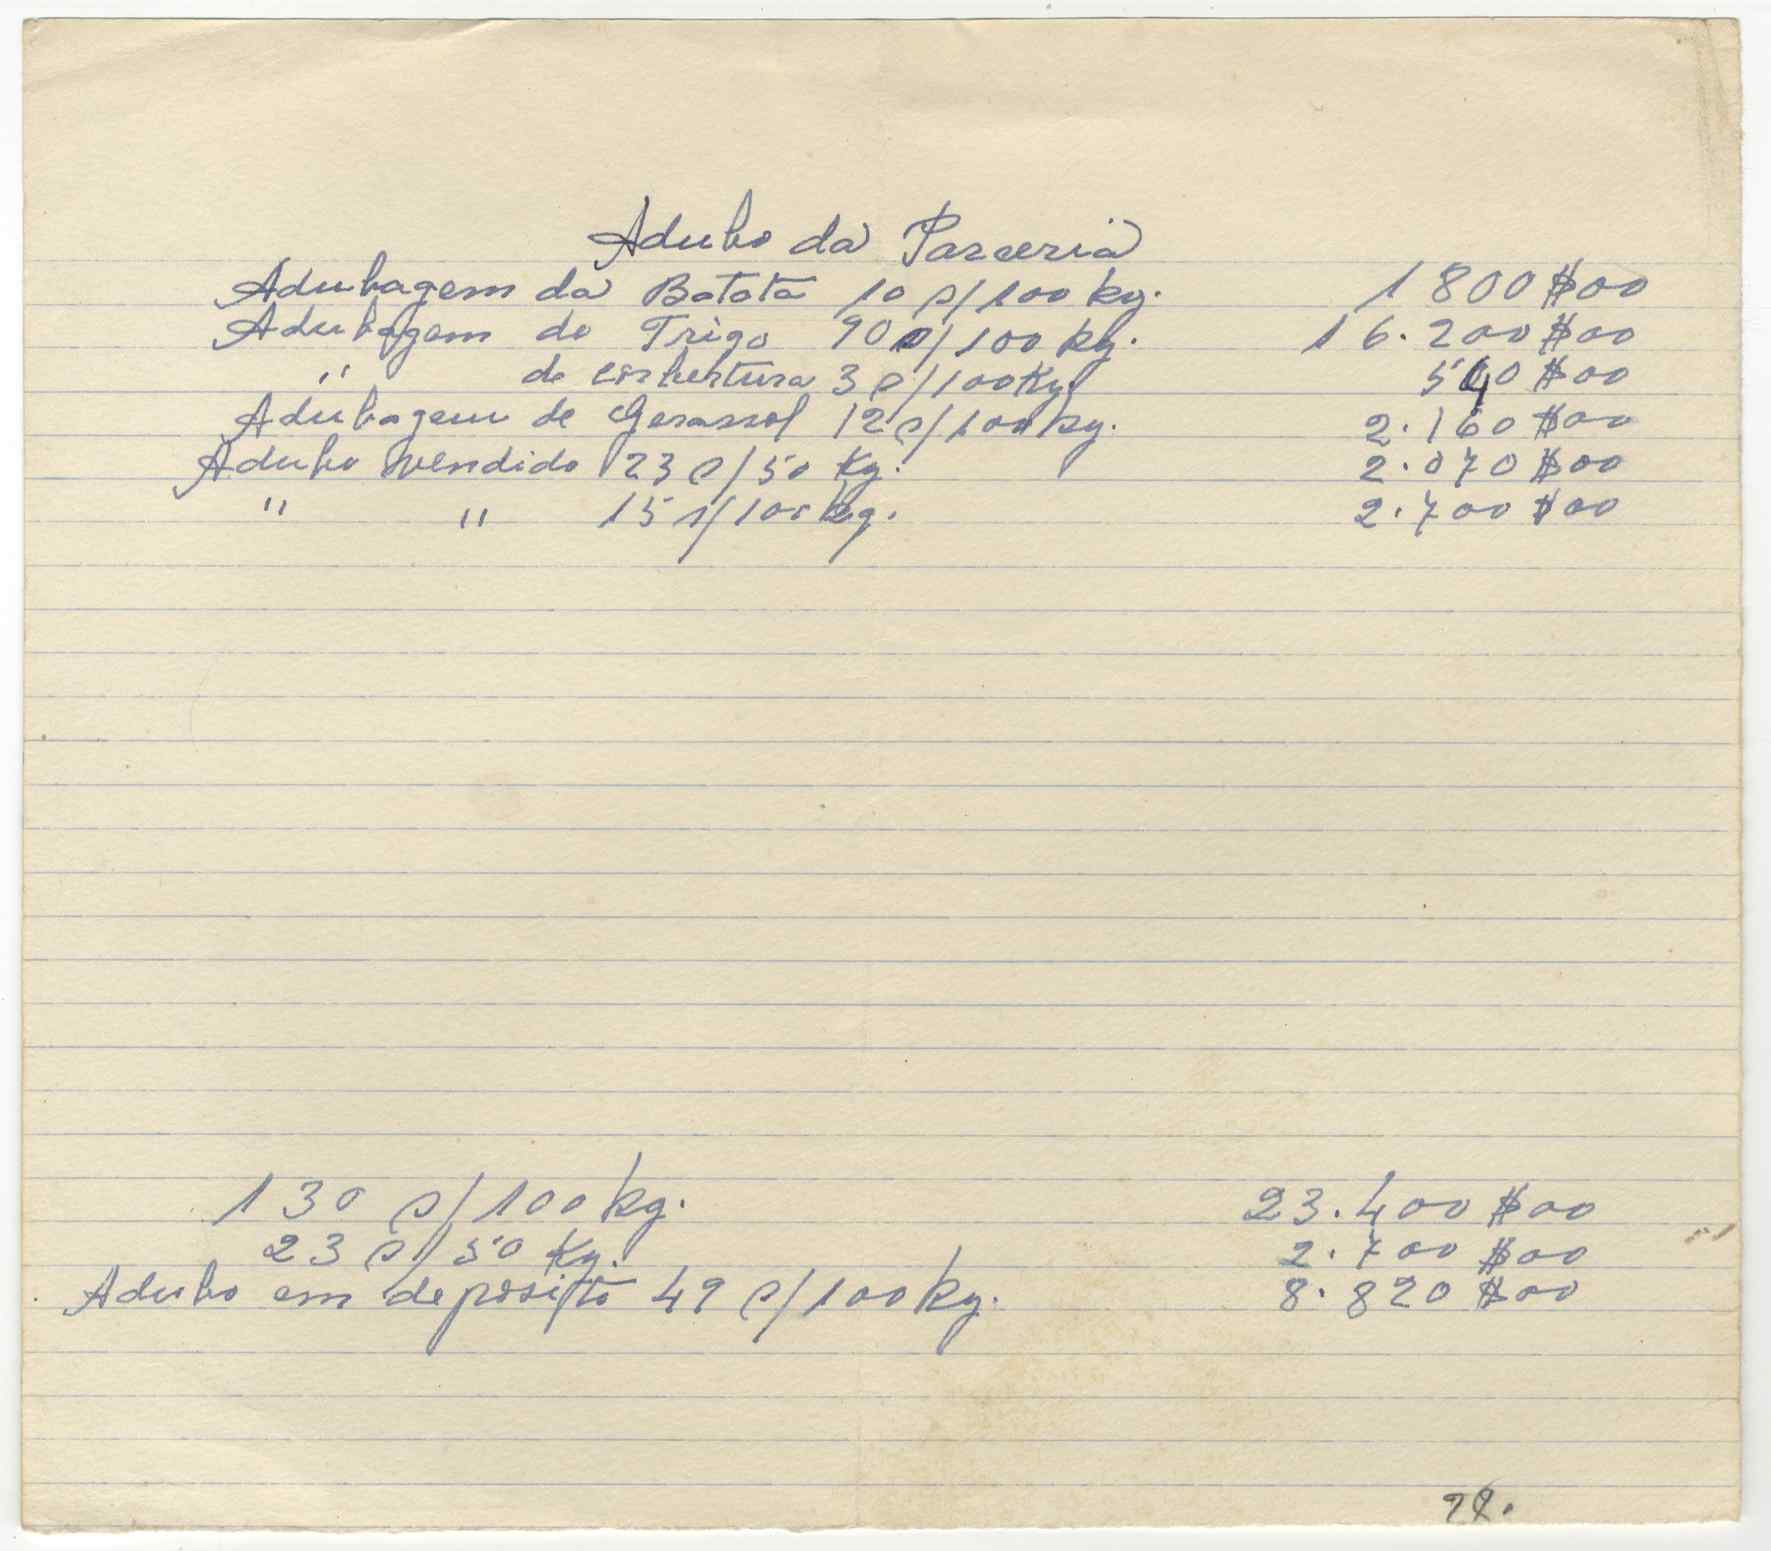 Adubo da Parceria
Adubagem da Batata 10 s/100 kg. 1800$00
Adubagem do Trigo 90 s/100 kg. 16.200$00
" de corbertura 3 s/100 Kg. 540$00
Adubagem de Gerassol 12 s/100 kg. 2.160$00
Adubo vendido 23 s/50 Kg. 2.070$00
" " 15 s/100 kg. 2.700$00
130 s/100 kg. 23.400$00
23 s/50 Kg. 2.700$00
Adubo em deposito 49 s/100 kg. 8.820$00